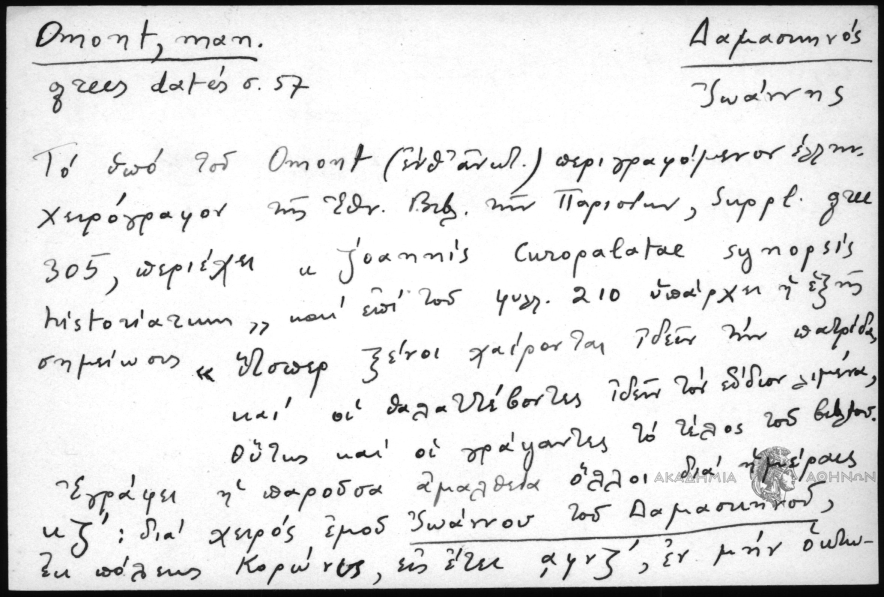 Omont, man. Δαμασκηνός
grecs datés σ. 57 Ἰωάννης
Τό ὑπό τοῦ Omont (ἔνθ' ἀνωτ.) περιγραφόμενον ἑλλην.
χειρόγραφον τῆς Ἐθν. Βιβλ. τῶν Παρισίων, Suppl. grec
305, περιέχει « Joannis Curopalatae synopsis
historiarum » καί ἐπί τοῦ φυλλ. 210 ὑπάρχει ἡ ἑξῆς
σημείωσις « ὥσπερ ξένοι χαίρονται ἰδεῖν τήν πατρίδα,
καί οἱ θαλαττέβοντες ἰδεῖν τόν εὔδιον λιμένα,
οὕτως καί οἱ γράψαντες τό τέλος τοῦ βιβλίου.
Ἐγράφει ἡ παροῦσα ἀμάλθεια ὅλλοι διά ἡμέραις
κζ': διά χειρός ἐμοῦ Ἰωάννου τοῦ Δαμασκηνοῦ,
ἐκ πόλεως Κορώνης, εἰς ἔτει ͵αφνζ', ἐν μήν ὀκτω-
ΑΚΑΔΗΜΙΑ ΑΘΗΝΩΝ